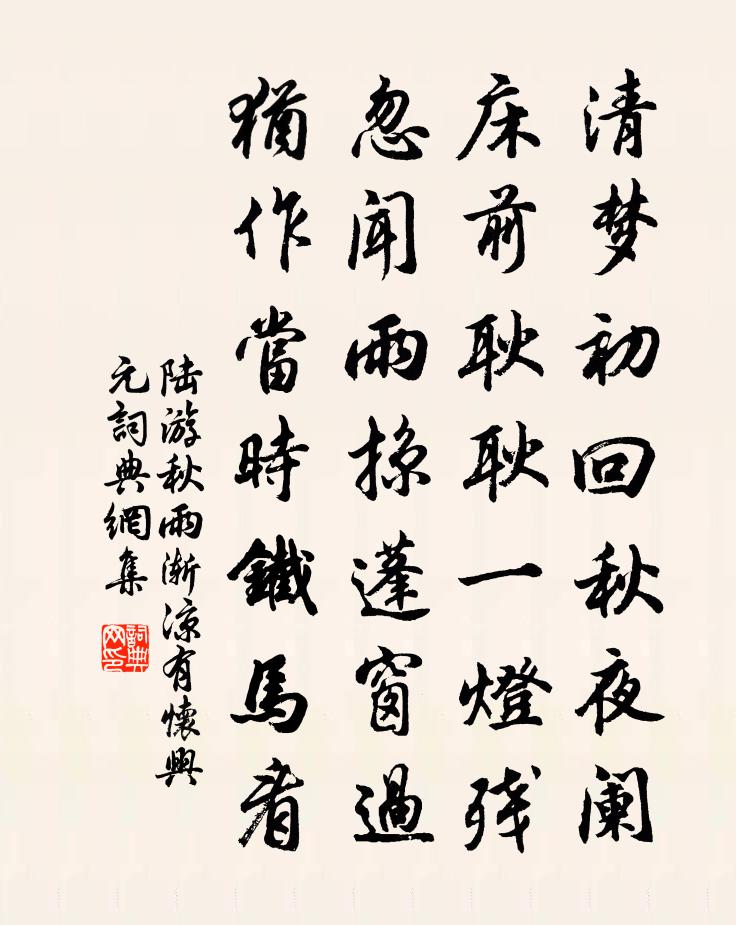 清梦初回秋夜阑
床前耿耿一燈残
忽闻雨掠蓬窗過
猶作當時鐵馬看
陆游秋雨渐凉有懐興
元詞典網集
詞典网印